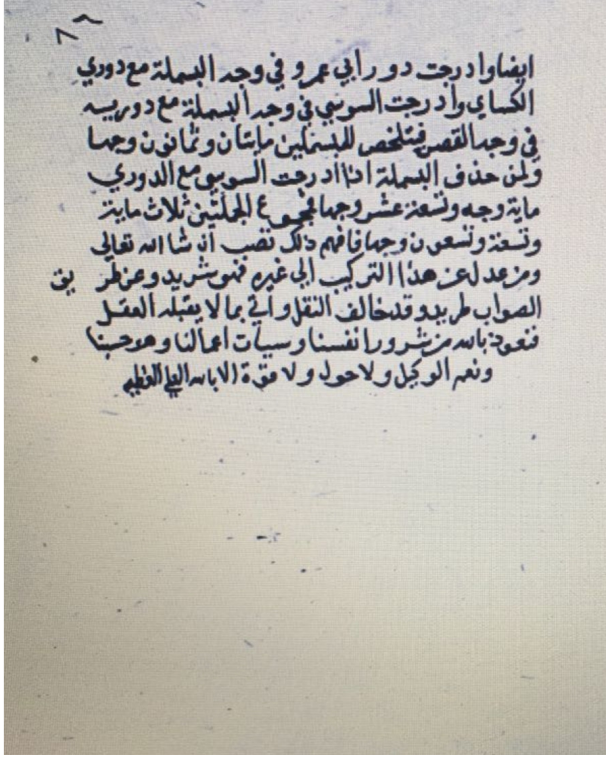 ٨٨
ايضا وادرجت دور ابي عمرو في وجه البسملة مع دوري
الكساي وادرجت السوسي في وجه البسملة مع دوريه
في وجه القصر فيتلخص للبسملين مايتان وثمانون وجها
ولمن حذف البسملة اذا ادرجت السوسي مع الدوري
ماية وجه وتسعة عشر وجها فجموع الجملتين ثلاث ماية
وتسعة وتسعون وجها فافهم ذلك تصب ان شا الله تعالي
ومن عدل عن هذا التركيب الي غيره فهو شريد وعن طر يق
الصواب طريد وقد خالف النقل واتي بما لا يقبله العقل
فنعوذ بالله من شرور انفسنا وسيات اعمالنا وهو حسبنا
ونعم الوكيل ولا حول ولا قوة الا بالله العلي العظيم